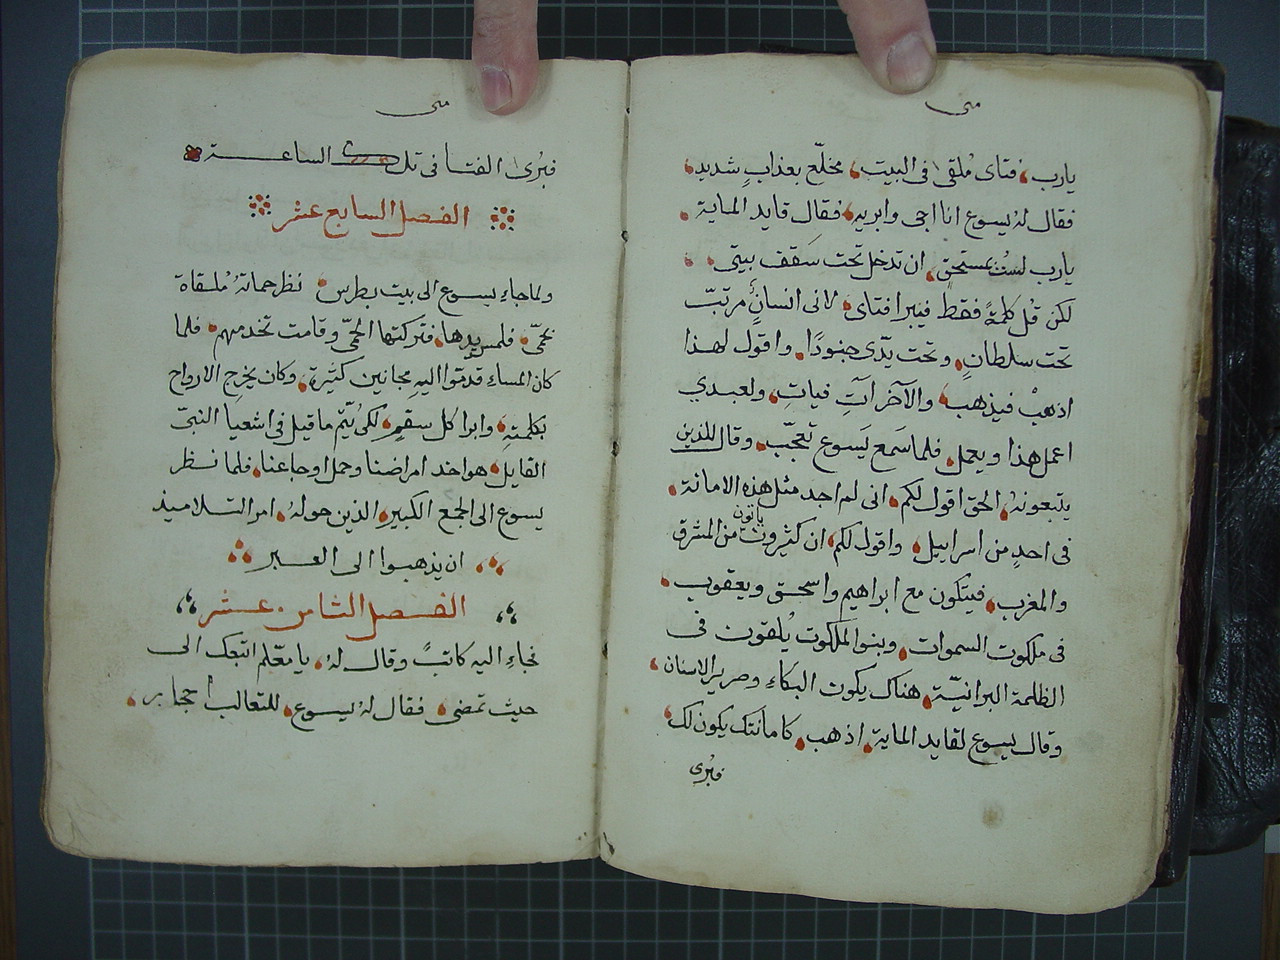 متى
يارب، فتاى مُلقى فى البيت، مخلّع بعذابٍ شديد،
فقال لهُ يسوع انا اجى وابريه، فقال قايد الماية
يارب لستُ بمستحق، ان تدخل تحت سَقف بيتى
لكن قُل كلمةً فقط فيبرا فتاى، لانى انسانٌ مرتبّ
تحت سلطانٍ، وتحت يدّى جنودًا، واقول لهذا
اذهبْ فيذهب، والآخر آتِ فياتِ، ولعبدي
اعمل هذا ويعمل، فلما سَمع يَسوع تعجّب، وقال للذين
يتبعونهُ، الحق اقول لكم، انى لم اجد مثل هذه الامانة،
فى احدٍ من اسراييل، واقول لكم، ان كثيرون ياتون من المشرق
والمغرب، فيتكون مع ابراهيم واسحق ويعقوب،
فى ملكوت السموات، وبنوا الملكوت يُلقون فى
الظلمة البرانيّة، هناك يكون البكاء وصرير الاسنان،
وقال يسوع لقايد الماية، اذهب، كامانتك يكون لك،
فبُرى
متى
فبُرى الفتا فى تلك الساعة
الفصل السابع عشر
ولما جاء يسوع الى بيت بطرس، نظر حماتهُ مُلقاة
بحمّى، فلمس يدها، فتركتها الحمّى وقامت تخدمهم، فلما
كان المساء قدموّا اليهِ مجانين كثيرة، وكان يخرج الارواح
بكلمتهِ، وابرا كل سقمٍ، لكى يُتّم ما قيل فى اشعيا النبىّ
القايل، هو اخد امراضنا وحمل اوجاعنا، فلما نظر
يسوع الى الجمع الكبير، الذين حولهُ، امر التلاميذ
ان يذهبوا الى العبر
الفصل الثامن عشر
فجاء اليه كاتبٌ وقال لهُ، يا معّلم اتبعك الى
حيث تمضى، فقال لهُ يسوع، للتعالب اجحار،